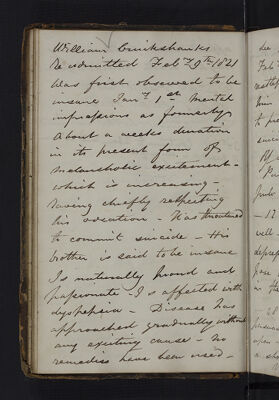 William Cruikshanks
Readmitted Feby 9th 1821
Was first observed to be
insane Jany 1st Mental
impressions as formerly
About a weeks duration
in its present form of
melancholic excitement -
which is increasing -
raving chiefly respecting
his vocation - Has threatened
to commit suicide - His
brother is said to be insane
Is naturally proud and
passionate - Is affected with
dyspepsia - Disease has
approached gradually without
any exciting cause - no
remedies have been used -